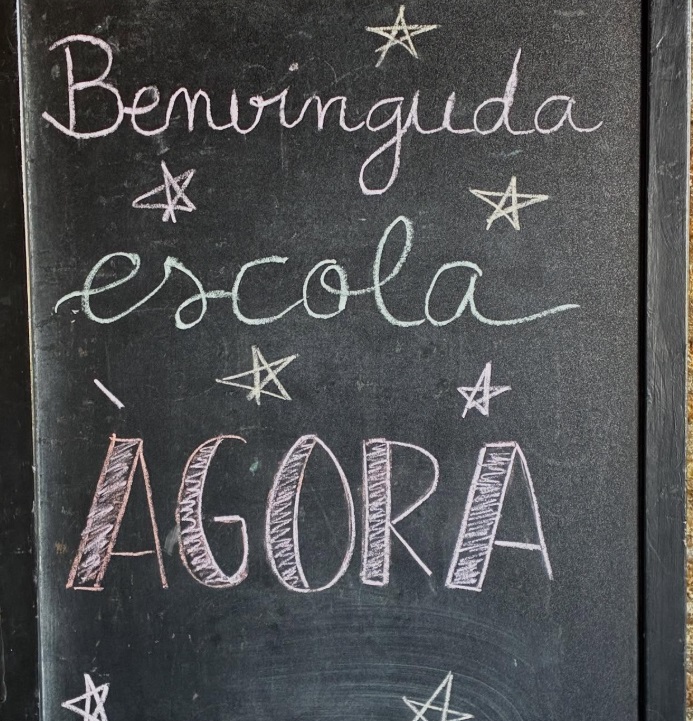 Benvinguda
escola
ÀGORA